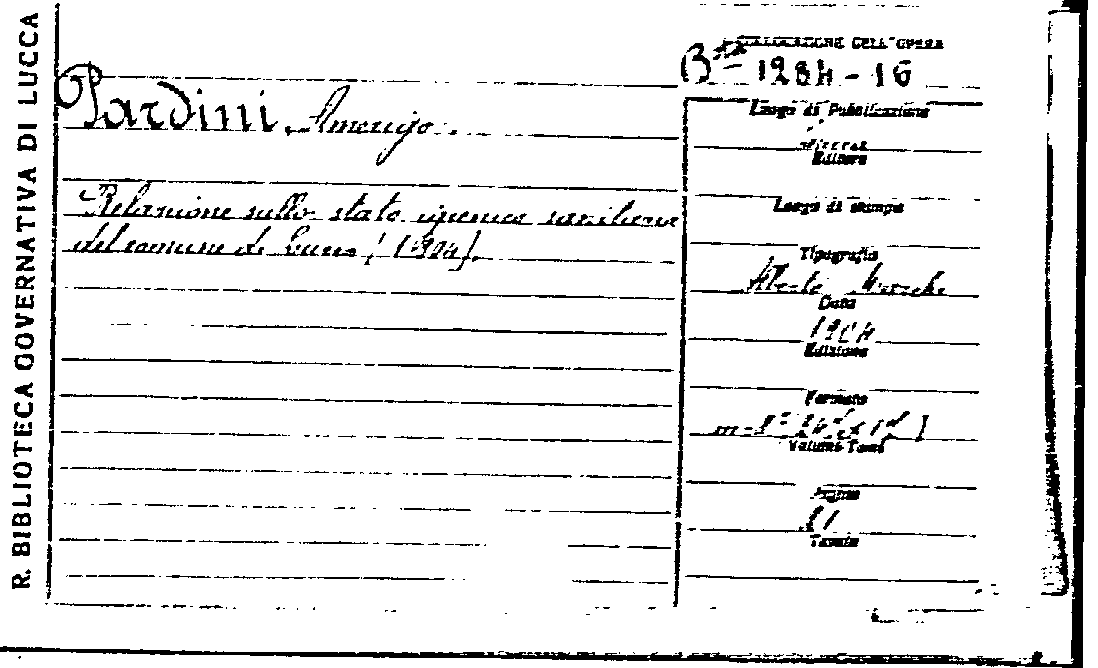 R. BIBLIOTECA GOVERNATIVA DI LUCCA
COLLOCAZIONE DELL'OPERA
1284-16
Pardini, Amerigo.
Relazione sullo stato igienico sanitario
del comune di Lucca [1904].
Luogo di Pubblicazione
Lucca
Editore
Luogo di stampa
Tipografia
Alberto Marchi
Data
1904
Edizione
Formato
in-8°
Volume-Tomo
Pagine
Tavole